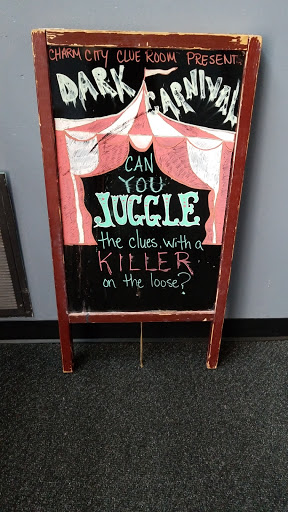 CHARM CITY CLUE ROOM PRESENT
DARK
CARNIVAL
CAN
YOU
JUGGLE
the clues with a
KILLER
on the loose?